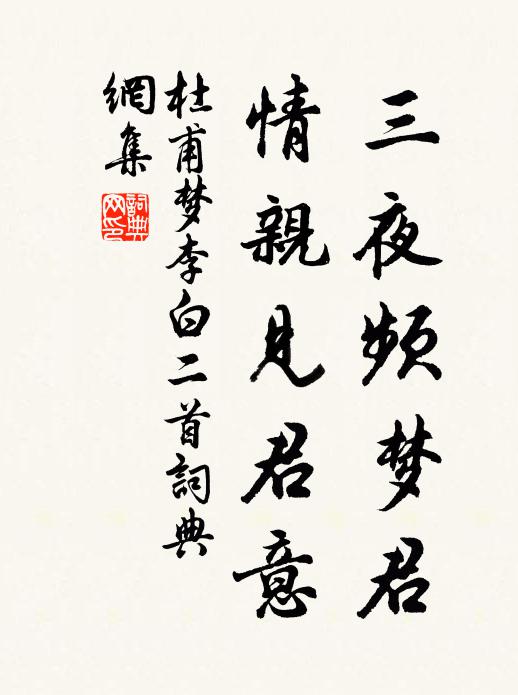 三夜频梦君
情親見君意
杜甫梦李白二首詞典
網集
詞典
网印